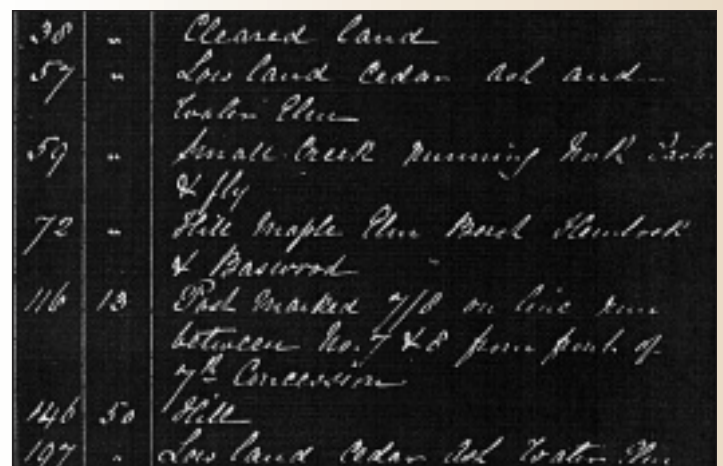 38 " Cleared land
57 " Low land Cedar ash and
Water Elm
59 " Small Creek running North
& fly
72 " Hill Maple Elm Beech Hemlock
& Basswood
116 13 Post marked 7/8 on line run
between No. 7 & 8 from front of
7th Concession
146 50 Hill
197 " Low land Cedar Ash Water Elm